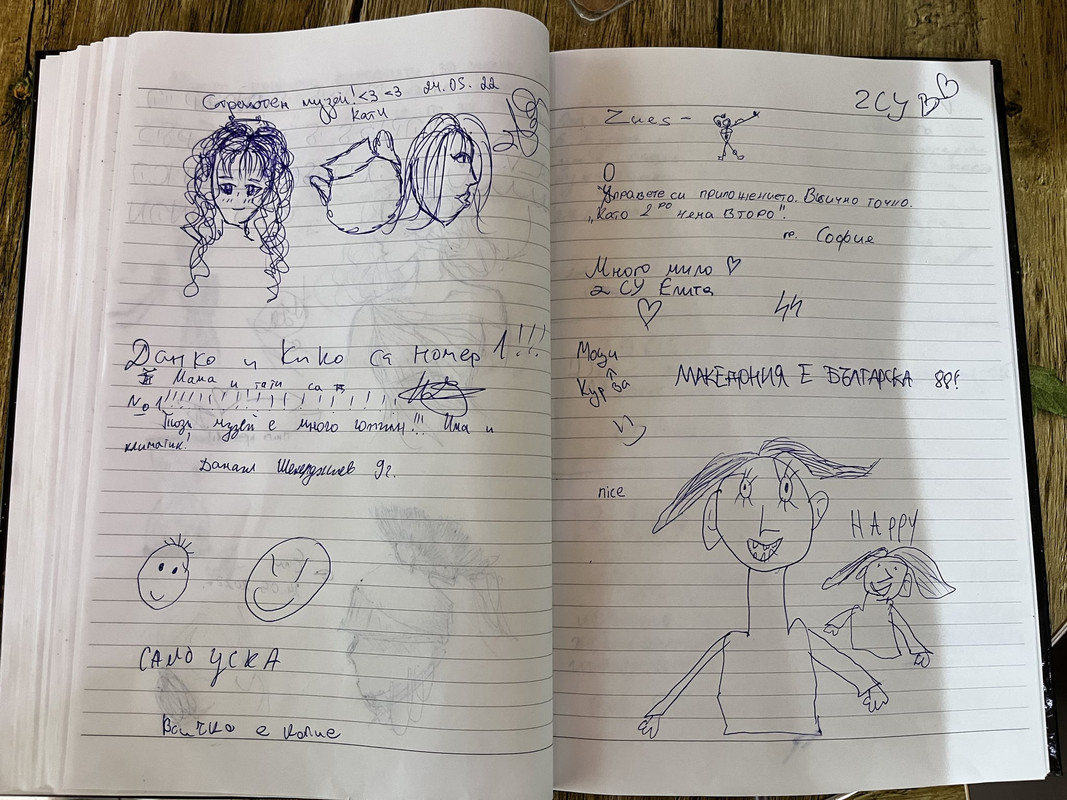 Страхотен музей! <3 <3 24.05.22
Кати
Данко и Кико са номер 1!!!
Мама и тати са
№1!!!!!!!!!!!!!!!
Този музей е много готин!!! Има и
климатик!
Данаил 9г.
САМО ЦСКА
Всичко е копие
2СУ
Zues -
Оправете си приложението. Всичко точно.
"Като 2ро чена Второ".
гр. София
Много мило ♡
2 СУ Елита
Мощи
Кур за
МАКЕДОНИЯ Е БЪЛГАРСКА
nice
HAPPY